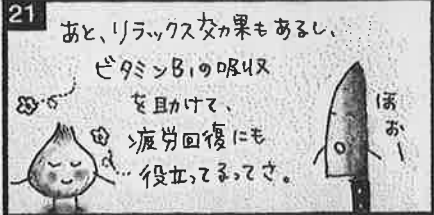 21
あと、リラックス効果もあるし、
ビタミンB₁の吸収
を助けて、
疲労回復にも
役立ってるってさ。
ほぉー